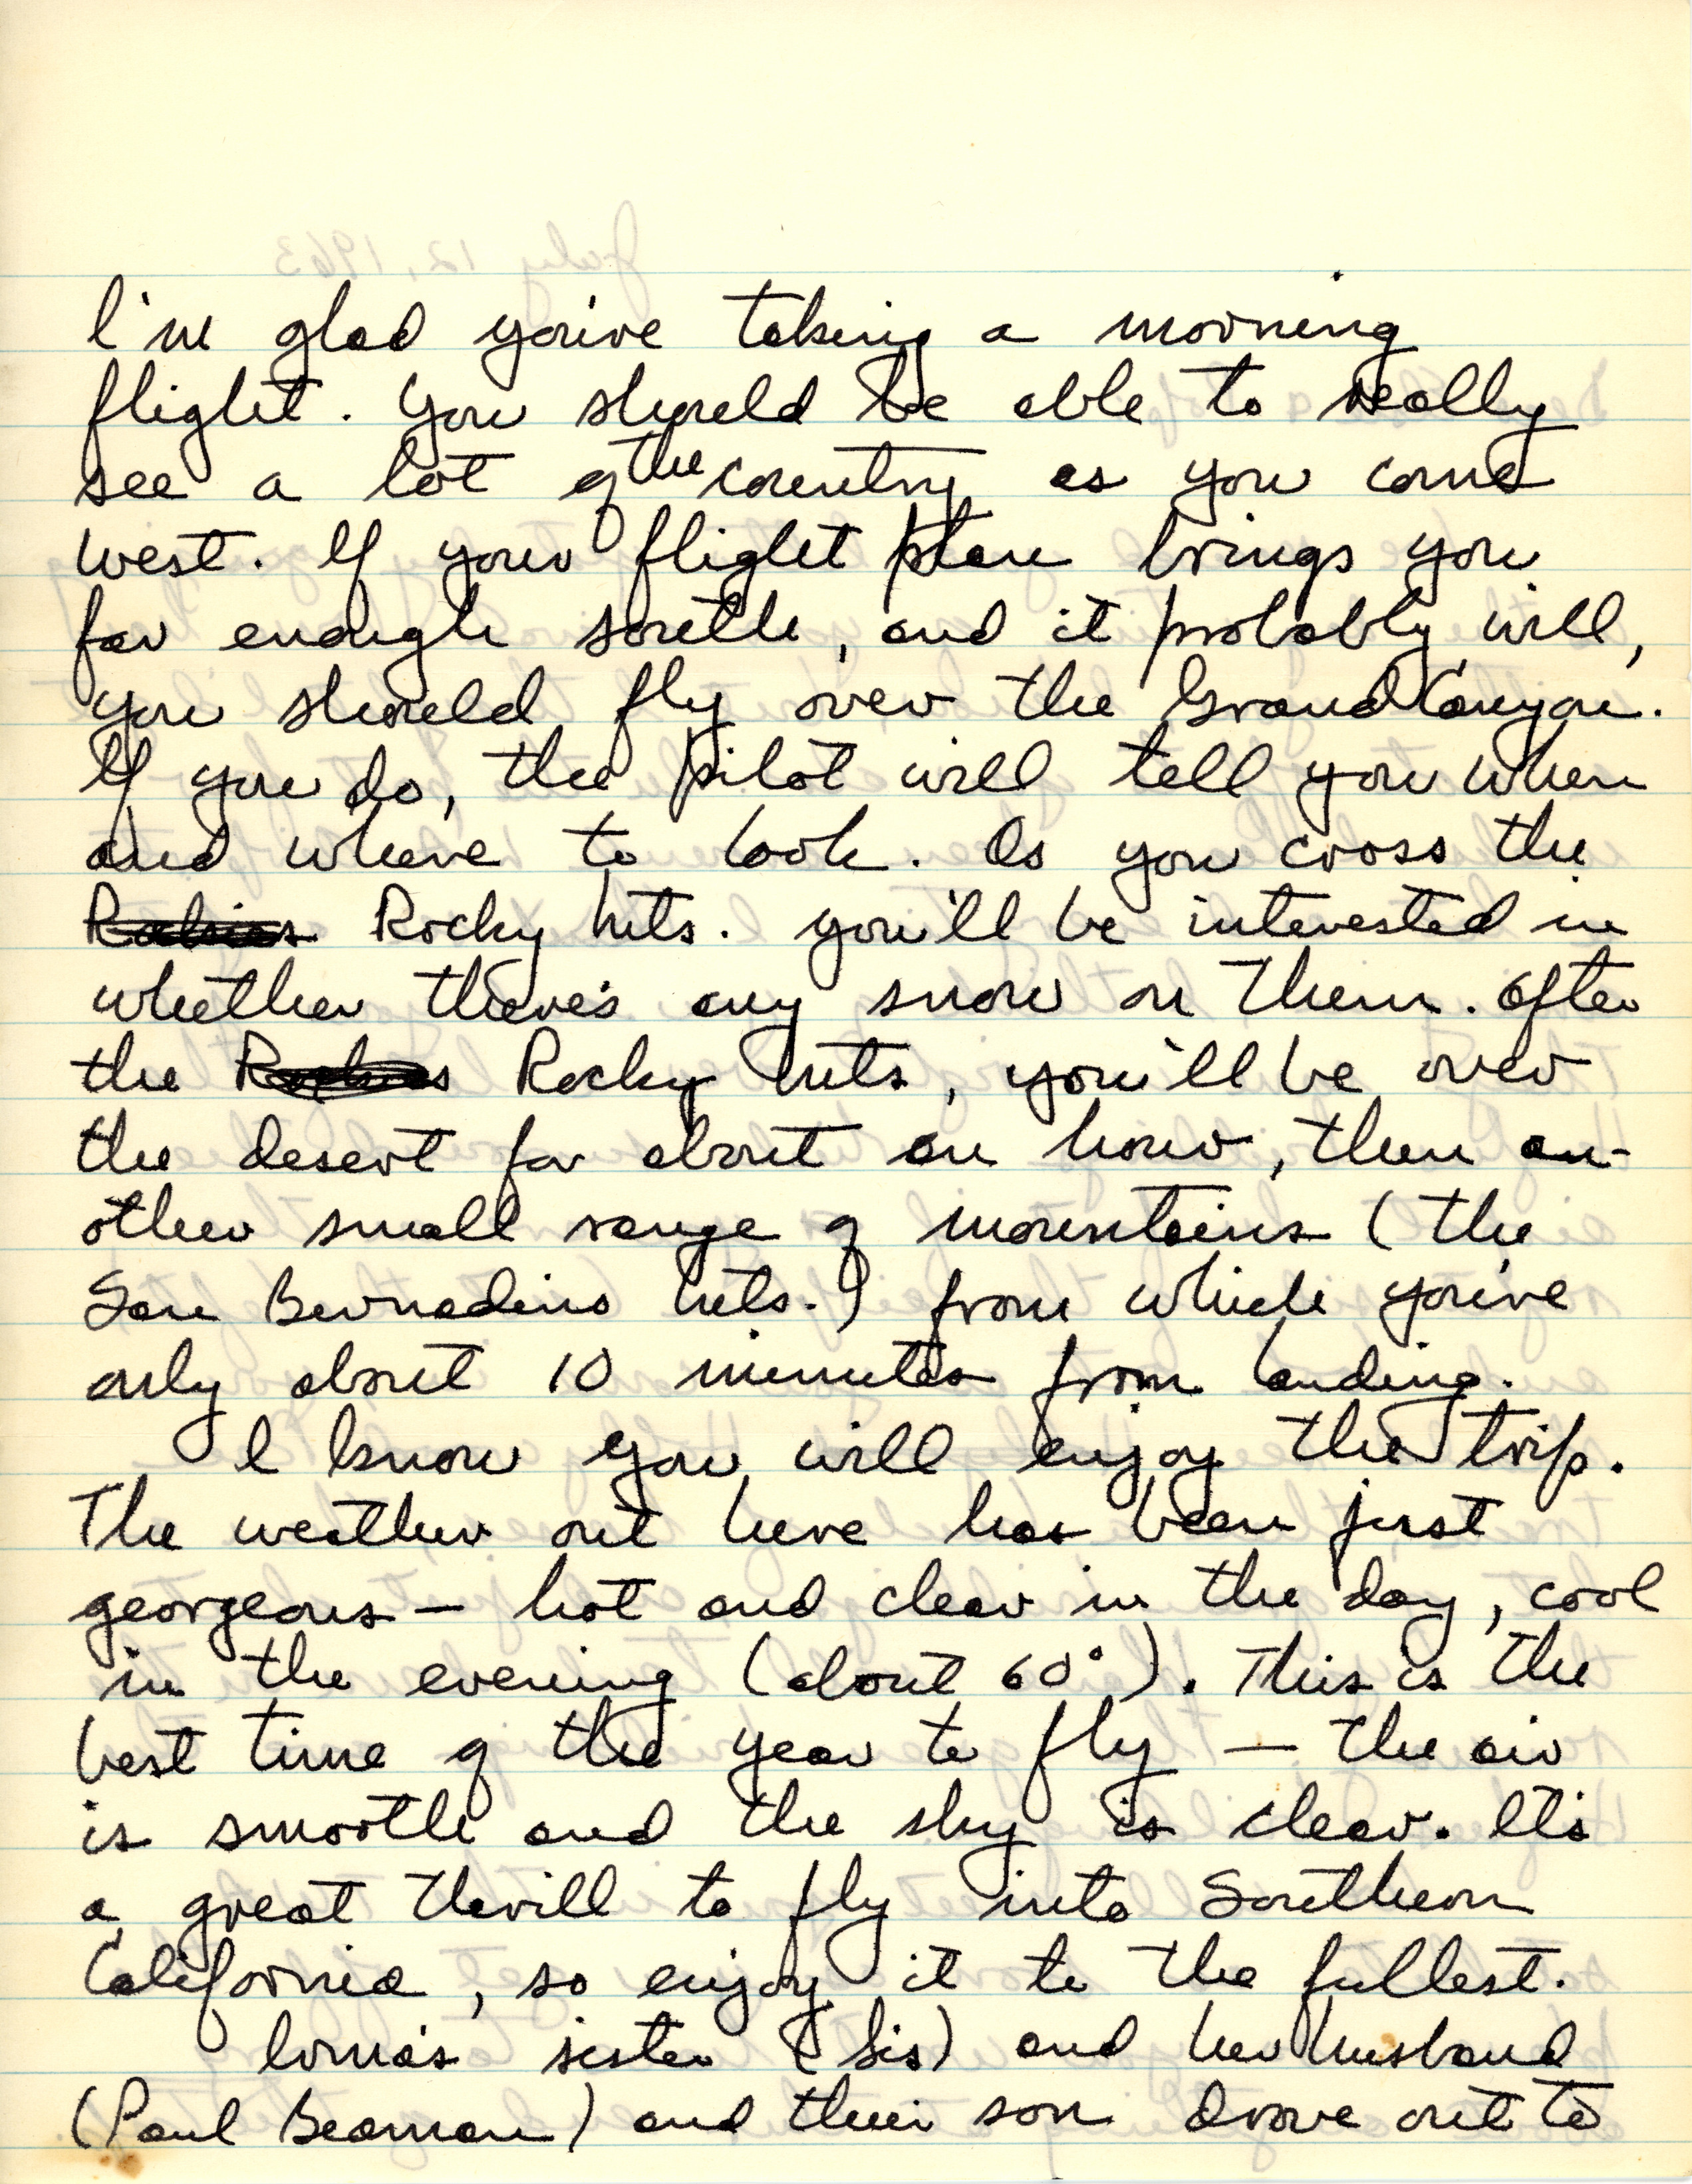 I'm glad you're taking a morning
flight. You should be able to really
see a lot of the country as you come
west. If your flight plan brings you
far enough south, and it probably will,
you should fly over the Grand Canyon.
If you do, the pilot will tell you when
and where to look. As you cross the
Rockies Rocky Mts. you'll be interested in
whether there's any snow on them. After
the Rockies Rocky Mts, you'll be over
the desert for about an hour, then an-
other small range of mountains (the
San Bernadino Mts.) from which you're
only about 10 minutes from landing.
I know you will enjoy the trip.
The weather out here has been just
georgeous — hot and clear in the day, cool
in the evening (about 60°). This is the
best time of the year to fly — the air
is smooth and the sky is clear. It's
a great thrill to fly into Southern
California, so enjoy it to the fullest.
Lorna's sister (Sis) and her husband
(Paul Beaman) and their son drove out to